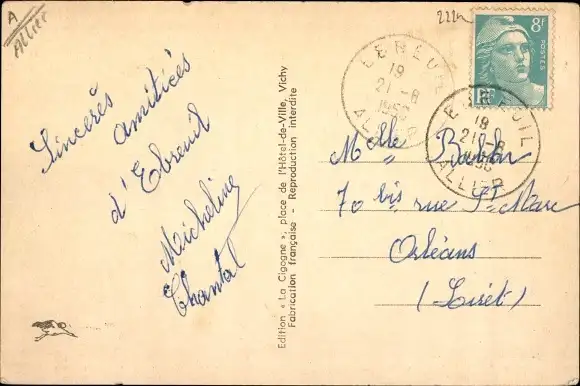 A
Allier
Sincères
amitiés
d'Ebreuil
Micheline
Chantal
Edition « La Cigogne », place de l'Hôtel-de-Ville, Vichy
Fabrication française - Reproduction interdite
EBREUIL
19
21 -8
1950
ALLIER
8F
POSTES
RF
EBREUIL
19
21 -8
1950
ALLIER
Melle
70 bis rue St Marc
Orléans
(Loiret)